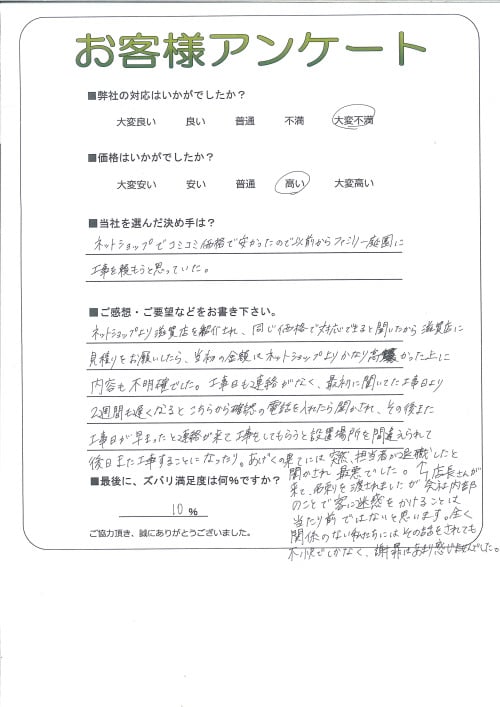 お客様アンケート
■弊社の対応はいかがでしたか？
大変良い 良い 普通 不満 大変不満
■価格はいかがでしたか？
大変安い 安い 普通 高い 大変高い
■当社を選んだ決め手は？
ネットショップでコミコミ価格で安かったので以前からファミリー庭園に
工事を頼もうと思っていた。
■ご感想・ご要望などをお書き下さい。
ネットショップより滋賀店を紹介され、同じ価格で対応できると聞いたから滋賀店に
見積りをお願いしたら、当初の金額はネットショップよりかなり高かった上に
内容も不明確でした。工事日も連絡がなく、最初に聞いてた工事日より
2週間も遅くなるとこちらから確認の電話を入れたら聞かされ、その後また
工事日が早まったと連絡が来て工事をしてもらうと設置場所を間違えられて
後日また工事することになったり。あげくの果てには突然、担当者が退職したと
聞かされ最悪でした。店長さんが
■最後に、ズバリ満足度は何%ですか？
来て、名刺を渡されましたが会社内部
のことで客に迷惑をかけることは
10 %
当たり前ではないと思います。全く
関係のない私たちにはその話をされても
ご協力頂き、誠にありがとうございました。
不快でしかなく、謝罪はあまり感じませんでした。